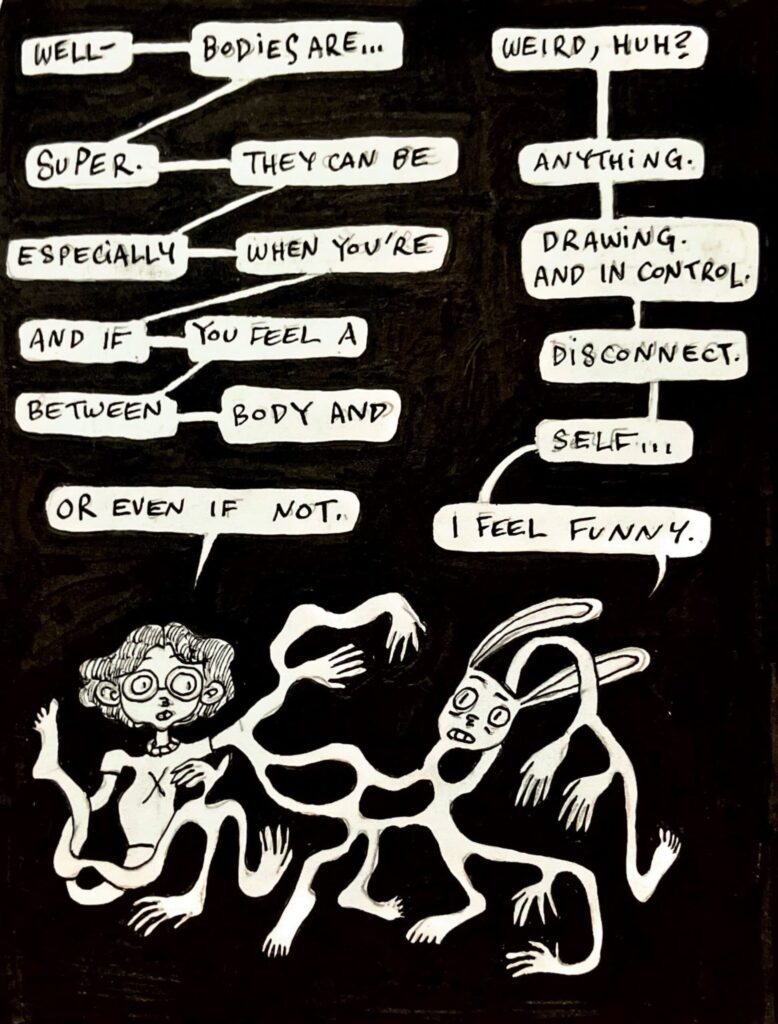 WELL-
BODIES ARE...
WEIRD, HUH?
SUPER.
THEY CAN BE
ANYTHING.
ESPECIALLY
WHEN YOU'RE
DRAWING.
AND IN CONTROL.
AND IF
YOU FEEL A
DISCONNECT.
BETWEEN
BODY AND
SELF...
OR EVEN IF NOT.
I FEEL FUNNY.
X